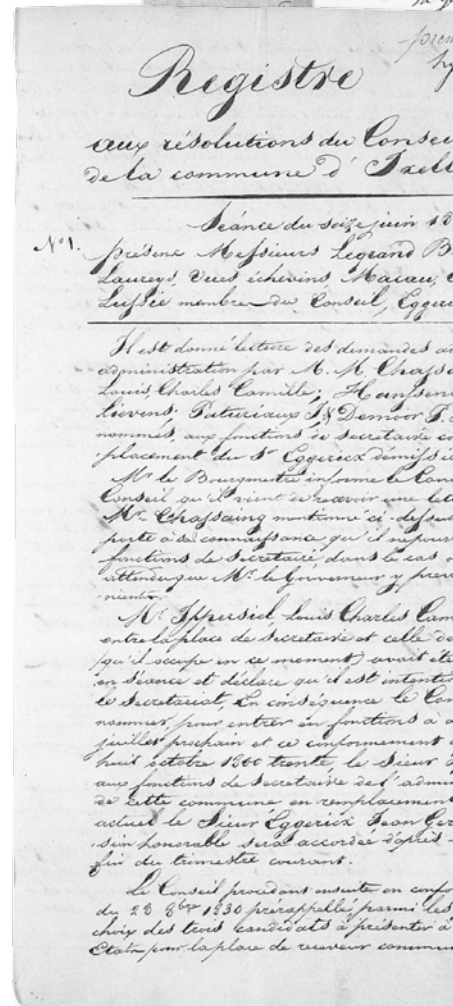 prem
Registre
aux résolutions du Consei
de la commune d' Ixell
Séance du seize juin 18
N° 1.
présens Messieurs Legrand B
Laureys, Vues échevins Macau,
membres du Conseil, Egger
Il est donné lecture des demandes a
administration par M. M. Chassa
Louis, Charles Camille; Hanssen
Lievens; Paturiaux J. & Demoor F.
nommés, aux fonctions de secrétaire co
placement du Sr Eggerickx démissi
Mr le Bourgmestre informe le Con
Conseil qu'il vient de recevoir une let
Mr Chassaing mentionné ci-dessu
porte à sa connaissance qu'il ne pour
fonctions de Secrétaire dans le cas o
attendu que Mr le Gouverneur y prev
nients.
Mr Ippersiel Louis Charles Cam
entre la place de Secrétaire et celle de
(qu'il occupe en ce moment) avait été
en séance et déclare qu'il est intenti
le Secretariat, En conséquence le Con
nommer, pour entrer en fonctions à d
juillet prochain et ce conformement
huit octobre 1800 trente, le Sieur
aux fonctions de Secretaire de l'admi
de cette commune en remplacement
actuel le Sieur Eggerickx Jean Ger
sion honorable sera accordée d'après
fin du trimestre courant.
Le Conseil procédant ensuite en confo
du 28 8bre 1830 prérappellé, parmi les
choix des trois candidats à présenter à
Etats pour la place de receveur commu